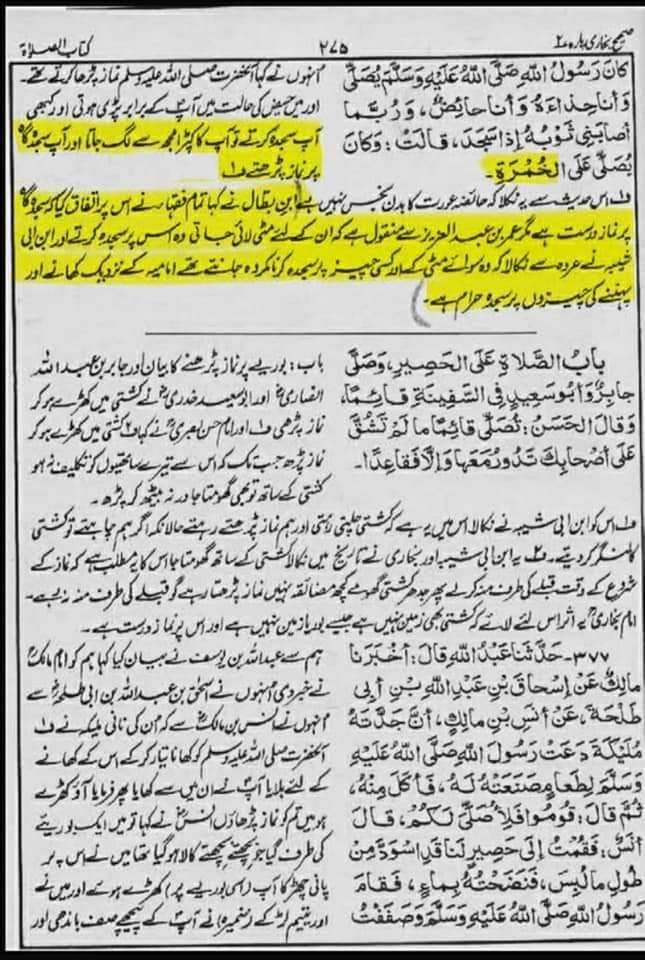 صحیح بخاری پارہ ۲
۲۷۵
کتاب الصلاۃ
كَانَ رَسُولُ اللهِ صَلَّى اللهُ عَلَيْهِ وَسَلَّمَ يُصَلِّي
وَأَنَا حِذَاءَهُ وَأَنَا حَائِضٌ، وَرُبَّمَا
أَصَابَنِي ثَوْبُهُ إِذَا سَجَدَ، قَالَتْ: وَكَانَ
يُصَلِّي عَلَى الْخُمْرَةِ۔
انہوں نے کہا آنحضرت صلی اللہ علیہ وسلم نماز پڑھا کرتے تھے۔
اور میں حیض کی حالت میں آپ کے برابر پڑی ہوتی اور کبھی
آپ سجدہ کرتے تو آپ کا کپڑا مجھ سے لگ جاتا اور آپ سجدہ گاہ
پر نماز پڑھتے ف۱
ف۱ اس حدیث سے یہ نکلا کہ حائضہ عورت کا بدن نجس نہیں ہے ابن بطال نے کہا تمام فقہا نے اس پر اتفاق کیا کہ سجدہ گاہ
پر نماز درست ہے مگر عمر بن عبد العزیز سے منقول ہے کہ ان کے لئے مٹی لائی جاتی وہ اس پر سجدہ کرتے اور ابن ابی
شیبہ نے عروہ سے نکالا کہ وہ سوائے مٹی کے اور کسی چیز پر سجدہ کرنا مکروہ جانتے تھے امامیہ کے نزدیک کھانے اور
پہننے کی چیزوں پر سجدہ حرام ہے۔
بَابُ الصَّلَاةِ عَلَى الْحَصِيرِ، وَصَلَّى
جَابِرٌ وَأَبُو سَعِيدٍ فِي السَّفِينَةِ قَائِمًا،
وَقَالَ الْحَسَنُ: تُصَلِّي قَائِمًا مَا لَمْ تَشُقَّ
عَلَى أَصْحَابِكَ تَدُورُ مَعَهَا وَإِلَّا فَقَاعِدًا۔
باب: بوریے پر نماز پڑھنے کا بیان اور جابر بن عبد اللہ
انصاری اور ابو سعید خدری نے کشتی میں کھڑے ہو کر
نماز پڑھی ف۱ اور امام حسن بصری نے کہا کشتی میں کھڑے ہو کر
نماز پڑھ جب تک کہ اس سے تیرے ساتھیوں کو تکلیف نہ ہو
کشتی کے ساتھ تو بھی گھومتا جا ورنہ بیٹھ کر پڑھ۔
ف۱ اس کو ابن ابی شیبہ نے نکالا اس میں یہ ہے کہ کشتی چلتی رہتی اور ہم نماز پڑھتے رہتے حالانکہ اگر ہم چاہتے تو کشتی
کا لنگر کر دیتے۔ ف۲ یہ ابن ابی شیبہ اور بخاری نے تاریخ میں نکالا کشتی کے ساتھ گھومتا جا اس کا یہ مطلب ہے کہ نماز کے
شروع کے وقت قبلے کی طرف منہ کر لے پھر جدھر کشتی گھومے کچھ مضائقہ نہیں نماز پڑھتا رہے گو قبلے کی طرف منہ نہ رہے۔
امام بخاری یہ اثر اس لئے لائے کہ کشتی بھی زمین نہیں ہے جیسے بوریا زمین نہیں ہے اور اس پر نماز درست ہے۔
۳۷۷- حَدَّثَنَا عَبْدُ اللهِ قَالَ: أَخْبَرَنَا
مَالِكٌ عَنْ إِسْحَاقَ بْنِ عَبْدِ اللهِ بْنِ أَبِي
طَلْحَةَ، عَنْ أَنَسِ بْنِ مَالِكٍ، أَنَّ جَدَّتَهُ
مُلَيْكَةَ دَعَتْ رَسُولَ اللهِ صَلَّى اللهُ عَلَيْهِ
وَسَلَّمَ لِطَعَامٍ صَنَعَتْهُ لَهُ، فَأَكَلَ مِنْهُ،
ثُمَّ قَالَ: قُومُوا فَلِأُصَلِّيَ لَكُمْ، قَالَ
أَنَسٌ: فَقُمْتُ إِلَى حَصِيرٍ لَنَا قَدِ اسْوَدَّ مِنْ
طُولِ مَا لُبِسَ، فَنَضَحْتُهُ بِمَاءٍ، فَقَامَ
رَسُولُ اللهِ صَلَّى اللهُ عَلَيْهِ وَسَلَّمَ وَصَفَفْتُ
ہم سے عبد اللہ بن یوسف نے بیان کیا کہا ہم کو امام مالک
نے خبر دی انہوں نے اسحٰق بن عبد اللہ بن ابی طلحہ سے
انہوں نے انس بن مالک سے کہ ان کی نانی ملیکہ نے ف۱
آنحضرت صلی اللہ علیہ وسلم کو کھانا تیار کر کے اس کے کھانے
کے لئے بلایا آپ نے ان میں سے کھایا پھر فرمایا آؤ کھڑے
ہو میں تم کو نماز پڑھاؤں انس نے کہا تو میں ایک بوریئے
کی طرف گیا جو بچھتے بچھتے کالا ہو گیا تھا میں نے اس پر
پانی چھڑکا آپ (اسی بوریے پر) کھڑے ہوئے اور میں نے
اور یتیم لڑکے (ضمیرہ) نے آپ کے پیچھے صف باندھی اور